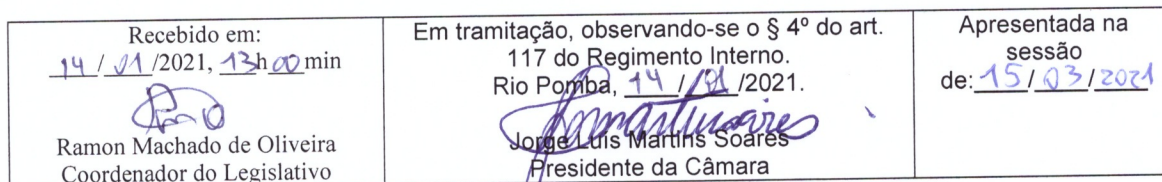 Recebido em:
14/01/2021, 13h00min
Ramon Machado de Oliveira
Coordenador do Legislativo
Em tramitação, observando-se o § 4º do art.
117 do Regimento Interno.
Rio Pomba, 14/01/2021.
Jorge Luis Martins Soares
Presidente da Câmara
Apresentada na
sessão
de: 15/03/2021